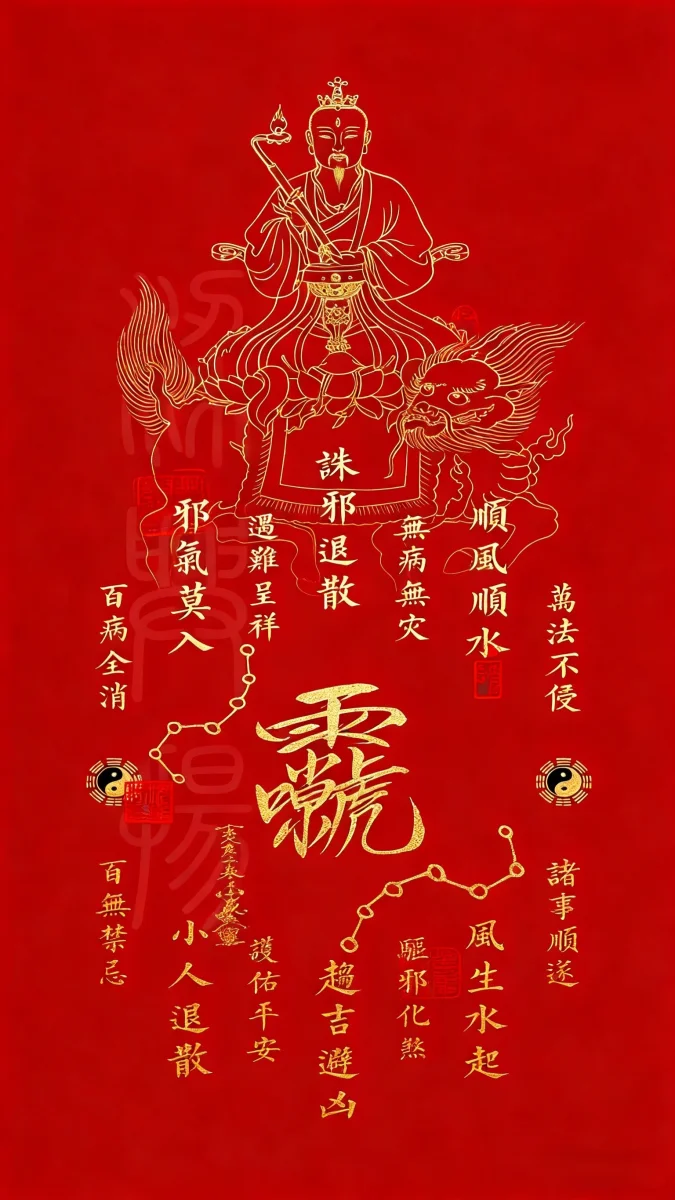 萬法不侵
順風順水
無病無灾
誅邪退散
遇難呈祥
邪氣莫入
百病全消
諸事順遂
風生水起
驅邪化煞
趨吉避凶
護佑平安
小人退散
百無禁忌